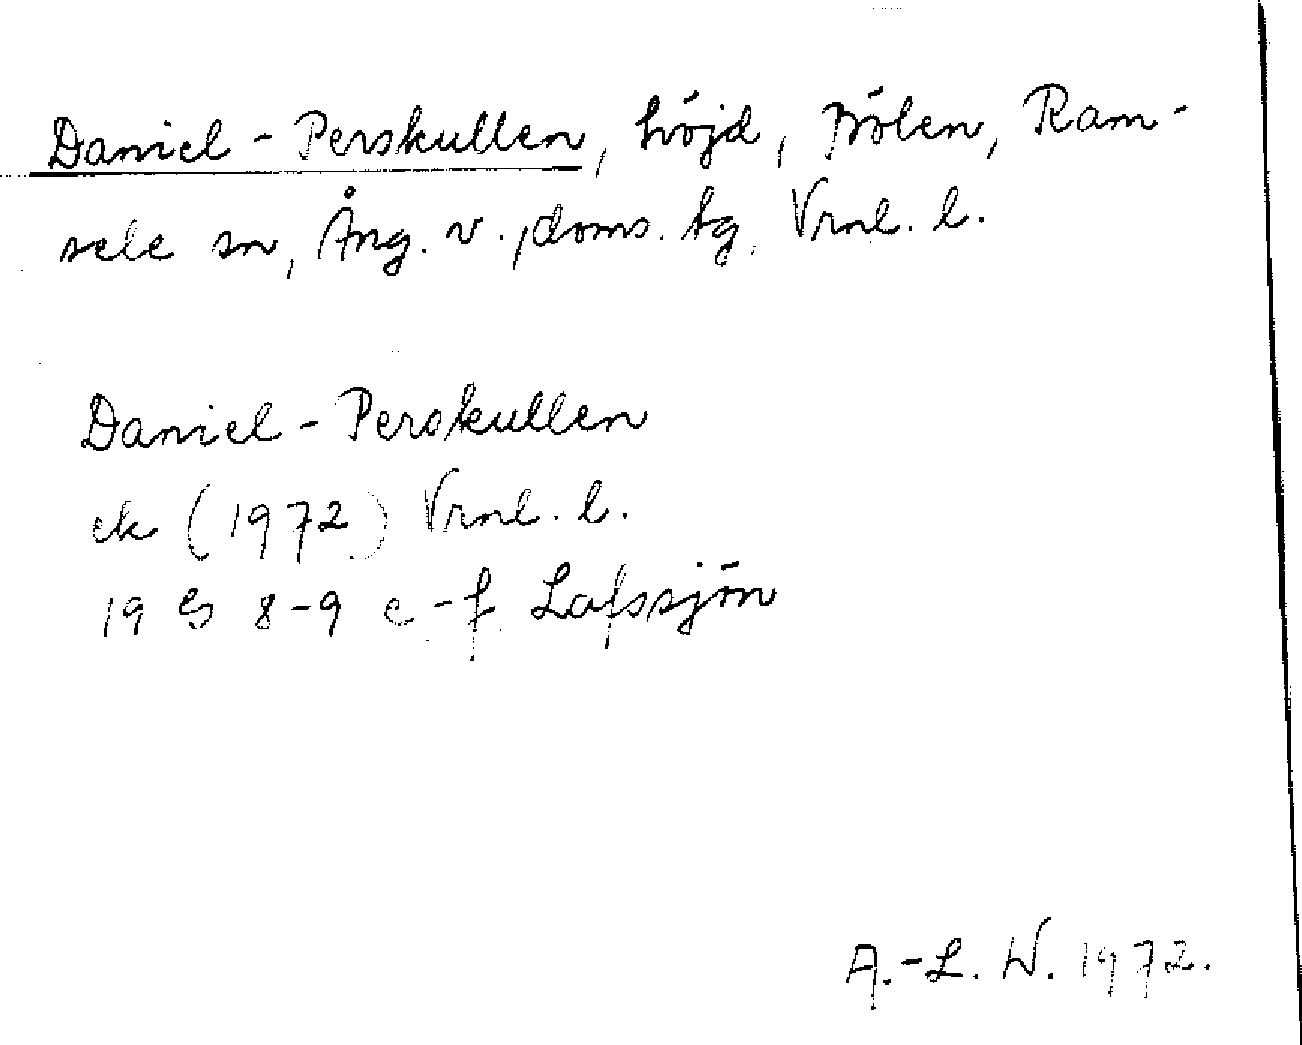 Daniel-Perskullen, höjd, Bölen, Ram-
sele sn, Ång. v., doms. tg, Vrnl. l.
Daniel-Perskullen
ek (1972) Vrnl. l.
19 G 8-9 e-f Lafssjön
A.-L. W. 1972.